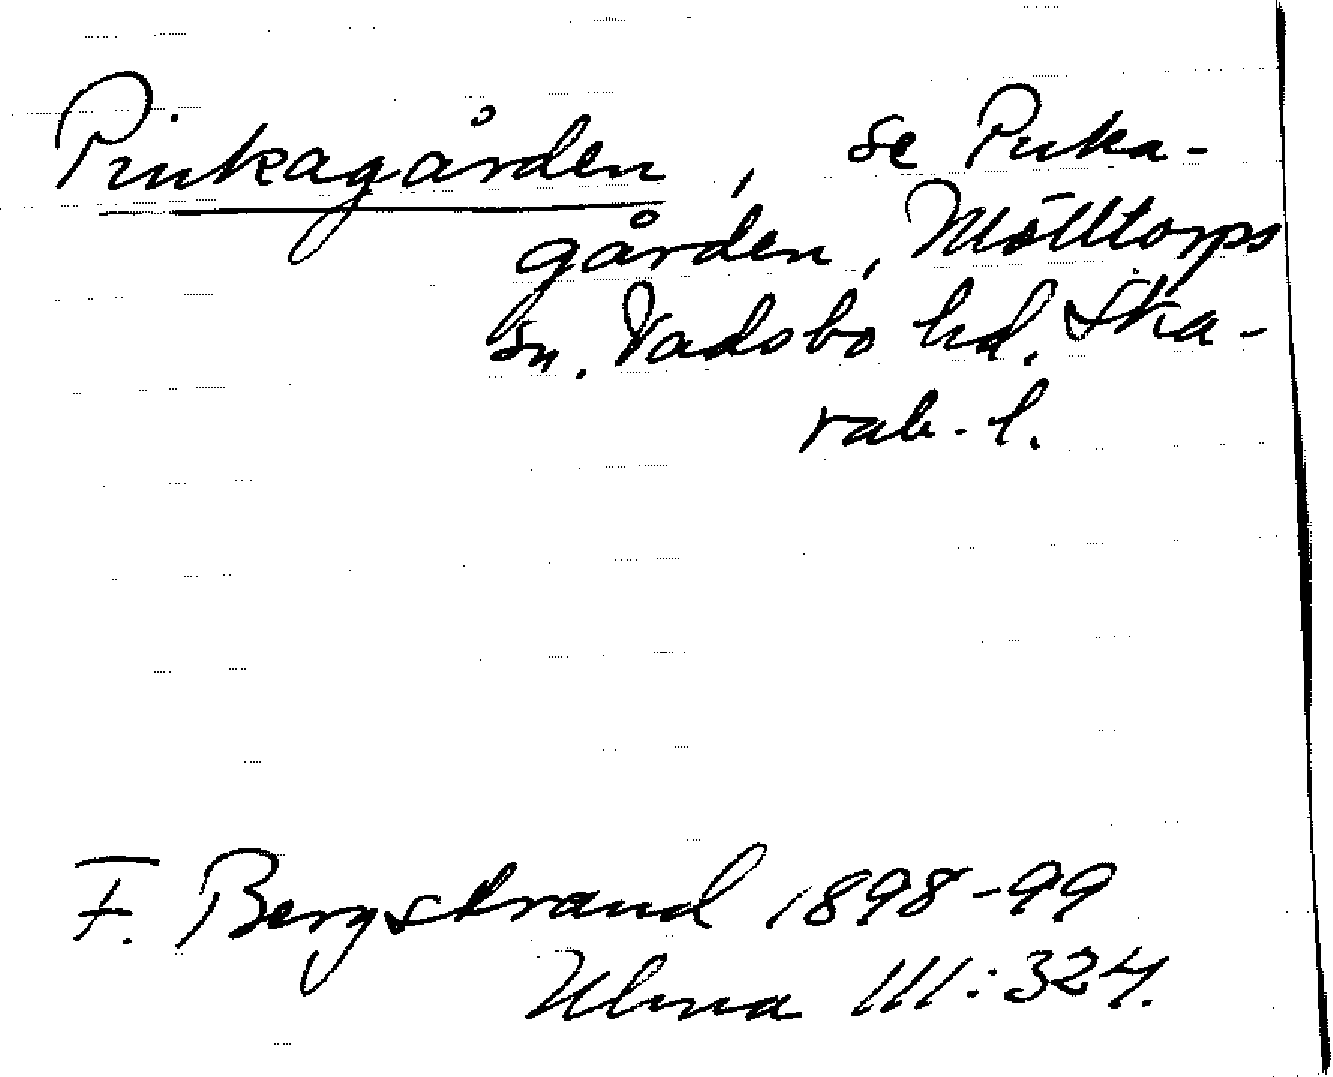 Pinkagården, se Puka-
gården, Mölltorps
sn. Vadsbo hd. Ska-
rab. l.
F. Bergstrand 1898-99
Ulma 111:324.